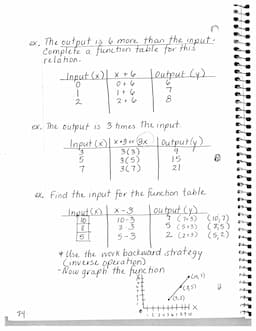 ex. The output is 6 more than the input.
Complete a function table for this
relation.
Input (x) | x + 6 | Output (y)
0 | 0 + 6 | 6
1 | 1 + 6 | 7
2 | 2 + 6 | 8
ex. The output is 3 times the input
Input (x) | x•3 or 3x | Output (y)
3 | 3(3) | 9
5 | 3(5) | 15
7 | 3(7) | 21
ex. Find the input for the function table
Input (x) | x - 3 | output (y)
10 | 10-3 | 7 (7+3) (10,7)
8 | 8-3 | 5 (5+3) (8,5)
5 | 5-3 | 2 (2+3) (5,2)
* Use the work backward strategy
(inverse operation)
- Now graph the function
(10,7)
(8,5)
(5,2)
X